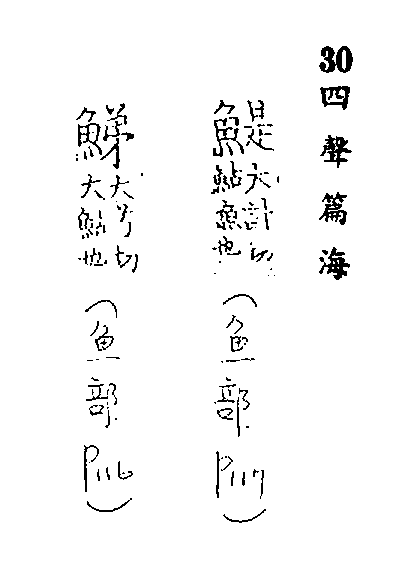 30四聲篇海
鯷大計切鮎魚也(魚部P117)
鮷大兮切大鮎也(魚部P116)